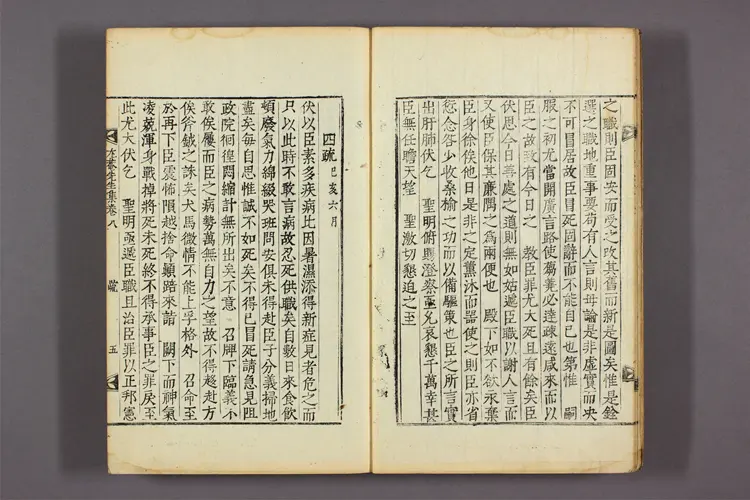 之職則臣固安而受之改其舊而新是圖矣惟是銓
選之職地重事要苟有人言則毋論是非虛實而決
不可冒居故臣冒死固辭而不能自已也第惟 嗣
服之初尤當開廣言路使蒭蕘必達疎遠咸來而以
臣之故致有今日之 教臣罪尤大死且有餘矣臣
伏思今日善處之道則無如姑遞臣職以謝人言而
又使臣保其廉隅之爲兩便也 殿下如不欲永棄
臣身俟他日是非之定薰沐而器使之則臣亦省
愆念咎少收桑榆之功而以備驅策也臣之所言實
出肝肺伏乞 聖明俯賜澄察亟允哀懇千萬幸甚
臣無任瞻天望 聖激切懇迫之至
四疏 己亥六月
伏以臣素多疾病比因暑濕添得新症見者危之而
只以此時不敢言病故忍死供職矣自數日來食飲
頓廢氣力綿綴哭班問安俱未得赴臣子分義掃地
盡矣每自思惟誠不如死矣不得已冒死請急見阻
政院徊徨悶縮計無所出矣不意 召牌下臨義不
敢俟屨而臣之病勢萬無自力之望故不得趍赴方
俟斧鉞之誅矣犬馬微情不能上孚格外 召命至
於再下臣震怖隕越捨命顚踣來詣 闕下而神氣
凌兢渾身戰掉將死未死終不得承事臣之罪戾至
此尤大伏乞 聖明亟遞臣職且治臣罪以正邦憲
先生集卷八 疏 五